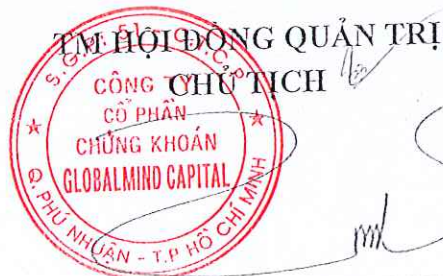 TM HỘI ĐỒNG QUẢN TRỊ
CHỦ TỊCH
CÔNG TY
CỔ PHẦN
CHỨNG KHOÁN
GLOBALMIND CAPITAL
Q. PHÚ NHUẬN - T.P HỒ CHÍ MINH